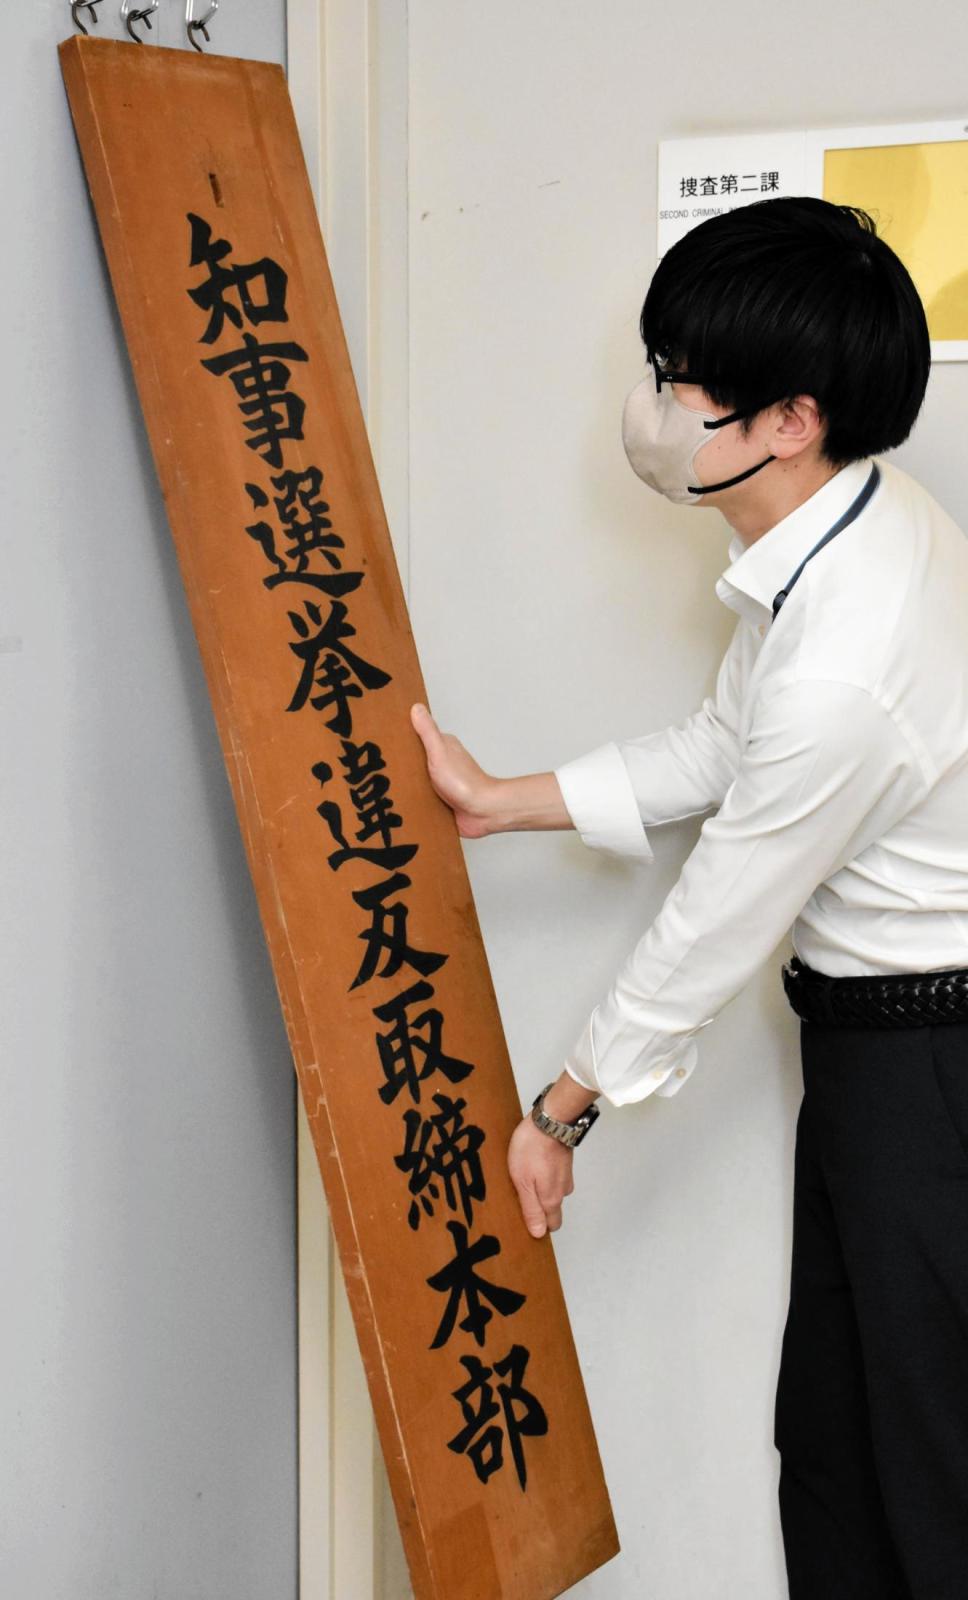 知事選挙違反取締本部
捜査第二課
SECOND CRIMINAL